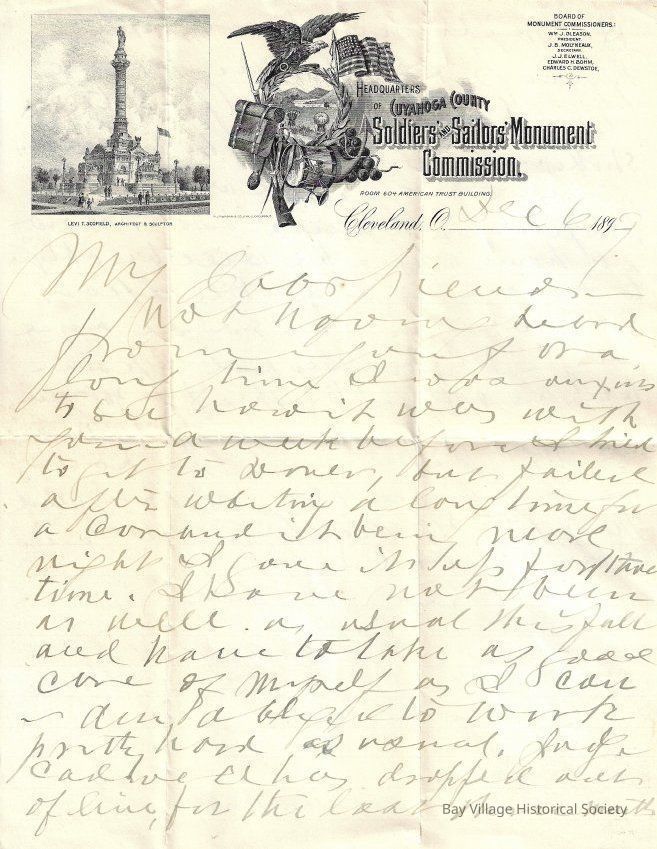 BOARD OF
MONUMENT COMMISSIONERS:
WM J. GLEASON,
PRESIDENT.
J. B. MOLYNEAUX,
SECRETARY.
J. J. ELWELL,
EDWARD H. BOHM,
CHARLES C. DEWSTOE,
HEADQUARTERS
OF CUYAHOGA COUNTY
Soldiers' AND Sailors' Monument
Commission.
ROOM 604 AMERICAN TRUST BUILDING.
LEVI T. SCOFIELD, ARCHITECT & SCULPTOR
Cleveland, O. Dec 6 1897
My Dear friends
Not having heard
from you for a
long time I was anxious
to see how it was with
you a week before I tried
to get to Dover, but failed
after waiting a long time for
a car and it being near
night I gave it up for that
time. I have not been
as well as usual this fall
and have to take as good
care of myself as I can
am able to work
pretty hard as usual. Judge
has dropped out
of line, for the last
Bay Village Historical Society